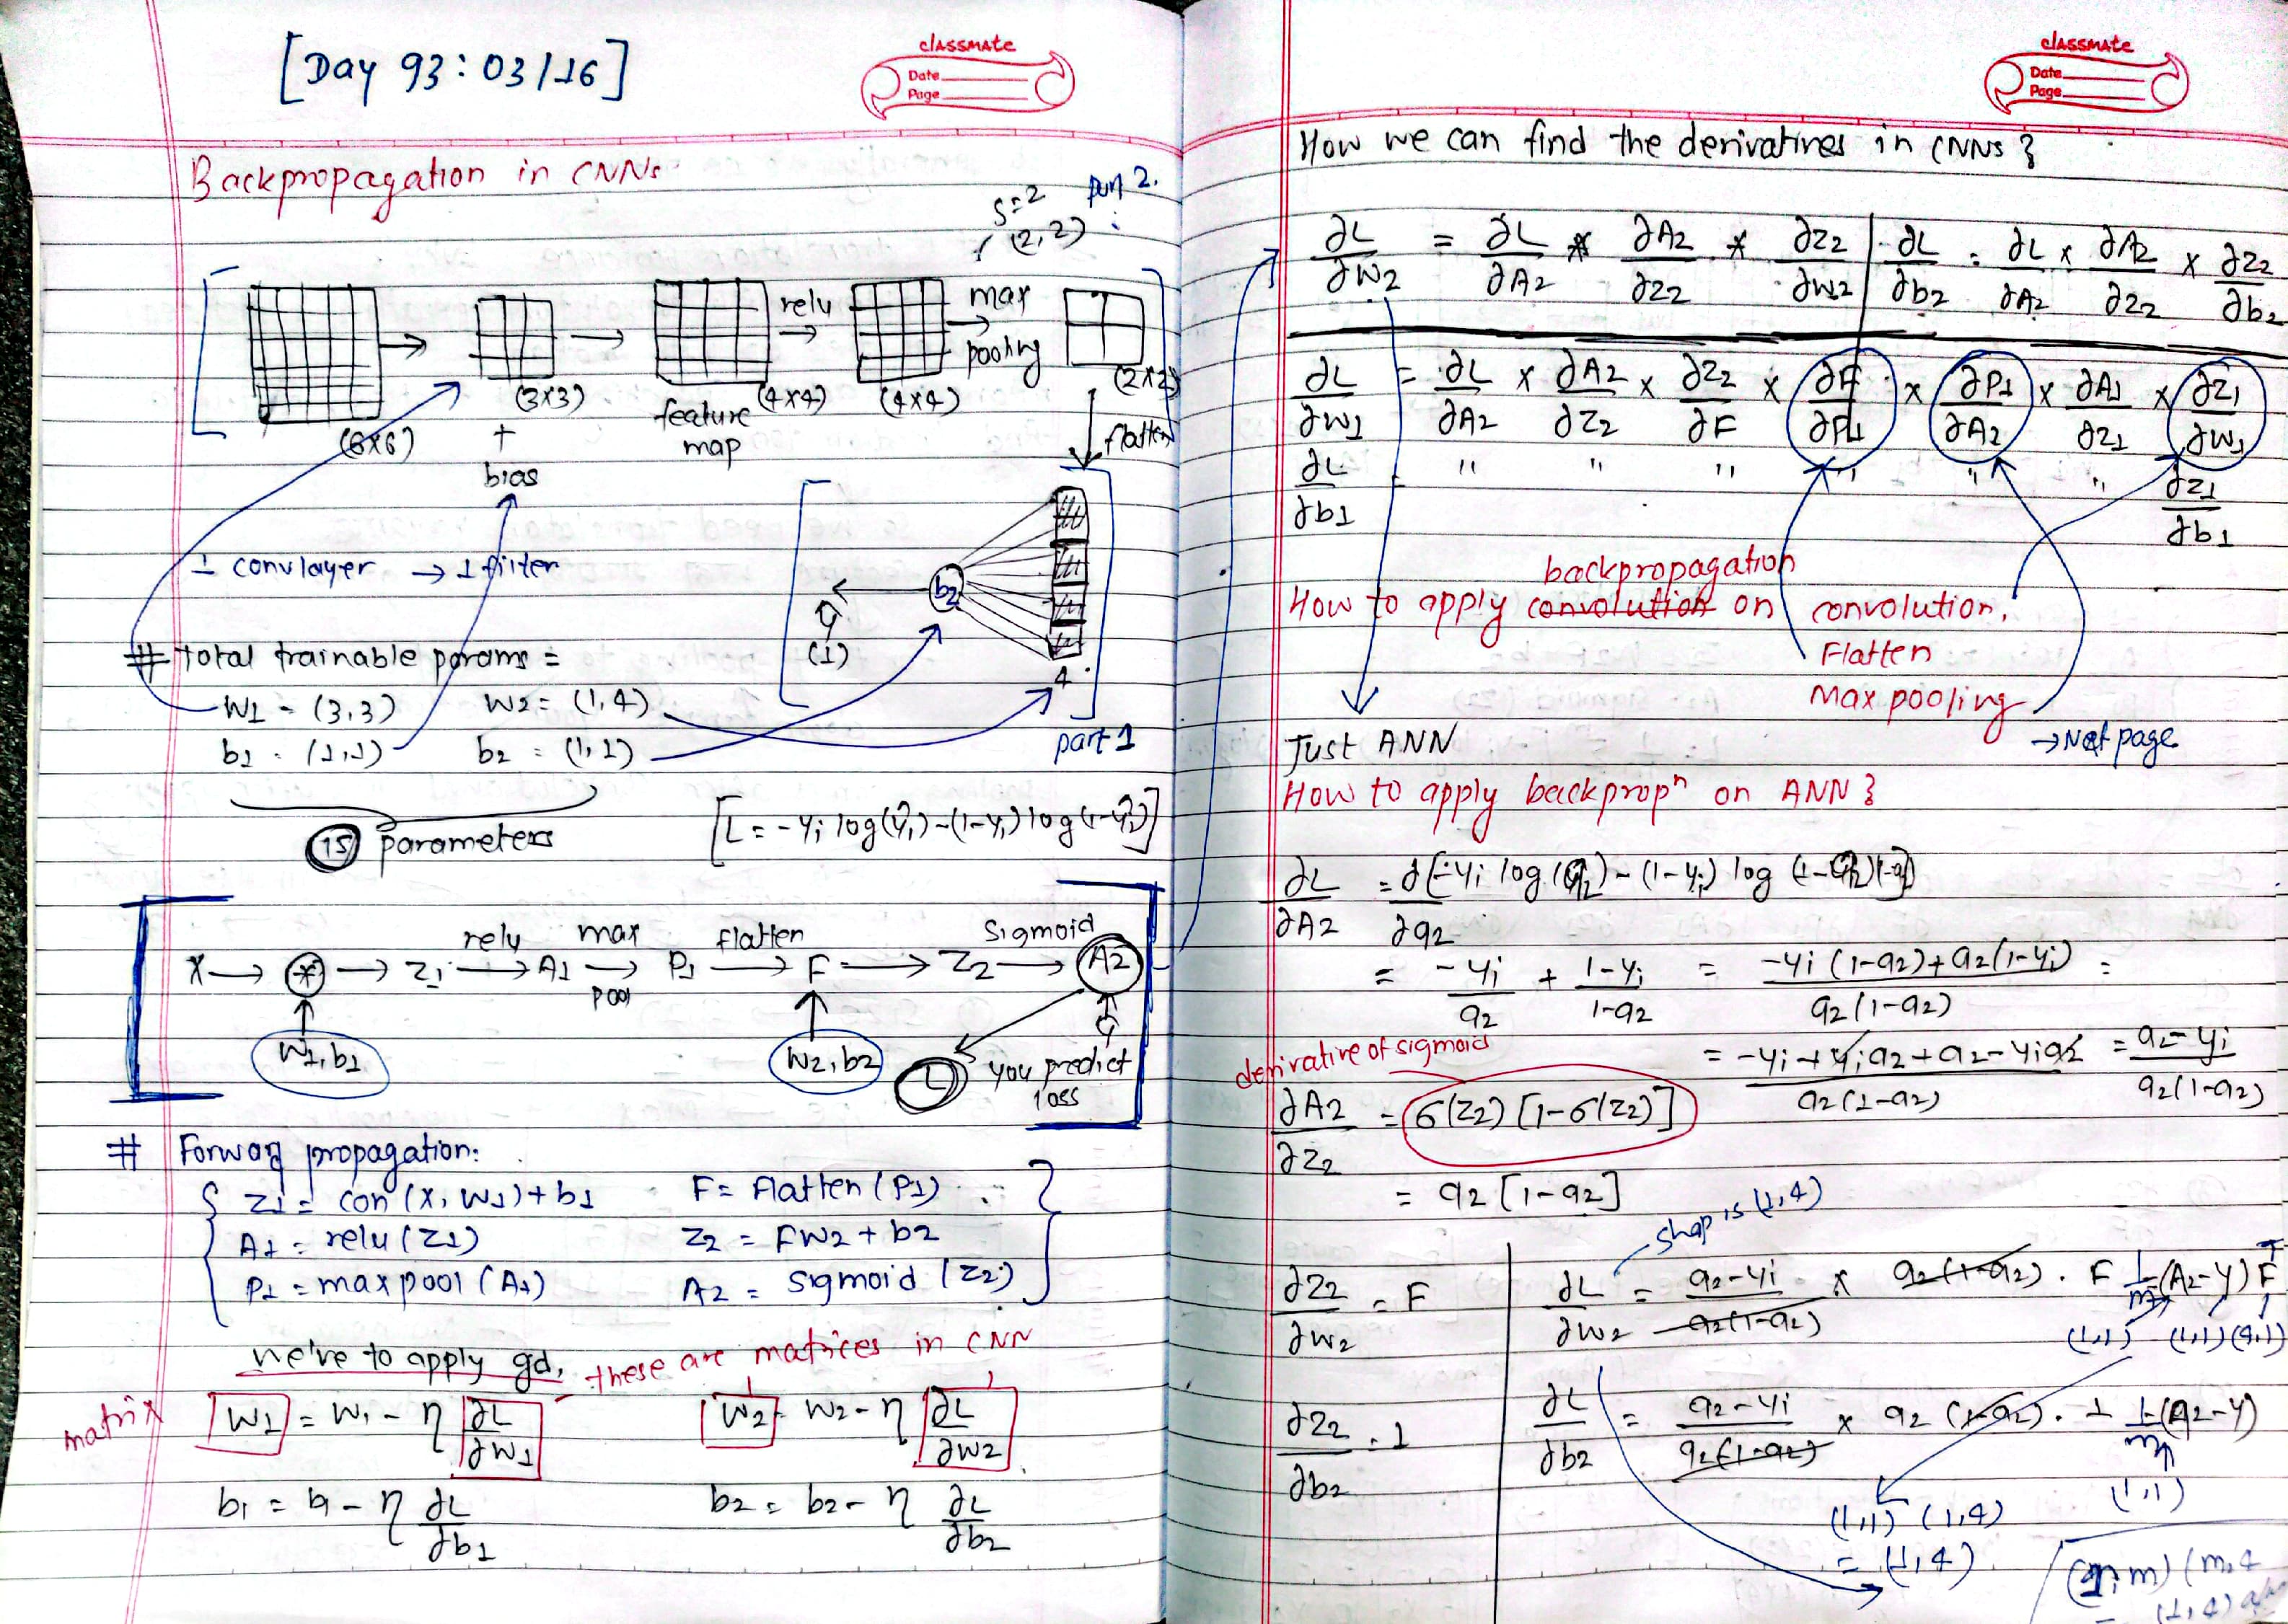 [Day 93: 03/16]
classmate
Date
Page
Backpropagation in CNNs
s=2
(2,2)
part 2.
relu
max
pooling
(6x6)
(3x3)
+
bias
feature
map
(4x4)
(4x4)
(2x2)
flatten
1 conv layer → 1 filter
b2
ŷ
(1)
4
part 1
# Total trainable params =
W1 = (3,3) W2 = (1,4)
b1 = (1,1) b2 = (1,1)
15 parameters
[L = -yi log(ŷi) - (1-yi) log(1-ŷi)]
X → * → Z1 relu → A1 max pool → P1 flatten → F → Z2 Sigmoid → A2
W1, b1
W2, b2
L
ŷ
you predict
loss
# Forward propagation:
Z1 = con(X, W1) + b1 F = Flatten (P1)
A1 = relu (Z1) Z2 = FW2 + b2
P1 = maxpool (A1) A2 = Sigmoid (Z2)
we're to apply gd, these are matrices in CNN
matrix
W1 = W1 - η ∂L/∂W1 W2 = W2 - η ∂L/∂W2
b1 = b1 - η ∂L/∂b1 b2 = b2 - η ∂L/∂b2
classmate
Date
Page
How we can find the derivatives in CNNs ?
∂L/∂W2 = ∂L/∂A2 * ∂A2/∂Z2 * ∂Z2/∂W2 | ∂L/∂b2 = ∂L/∂A2 x ∂A2/∂Z2 x ∂Z2/∂b2
∂L/∂W1 = ∂L/∂A2 x ∂A2/∂Z2 x ∂Z2/∂F x ∂F/∂P1 x ∂P1/∂A2 x ∂A1/∂Z1 x ∂Z1/∂W1
∂L/∂b1 = " " " " " " ∂Z1/∂b1
backpropagation
How to apply convolution on convolution,
Flatten
Max pooling
→ Next page
Just ANN
How to apply backpropⁿ on ANN ?
∂L/∂A2 = ∂[-yi log(a2) - (1-yi) log (1-a2)]/∂a2
= -yi/a2 + 1-yi/1-a2 = -yi(1-a2)+a2(1-yi)/a2(1-a2) =
= -yi+yia2+a2-yia2/a2(1-a2) = a2-yi/a2(1-a2)
derivative of sigmoid
∂A2/∂Z2 = σ(Z2) [1-σ(Z2)]
= a2 [1-a2]
shap is (1,4)
∂Z2/∂W2 = F | ∂L/∂W2 = a2-yi/a2(1-a2) x a2(1-a2) . F 1/m (A2-Y) Fᵀ
(1,1) (1,1) (4,1)
∂Z2/∂b2 = 1 | ∂L/∂b2 = a2-yi/a2(1-a2) x a2 (1-a2) . 1 1/m (A2-Y)
(1,1)
(1,1) (1,4)
= (1,4)
(1,m) (m,4
(1,4)